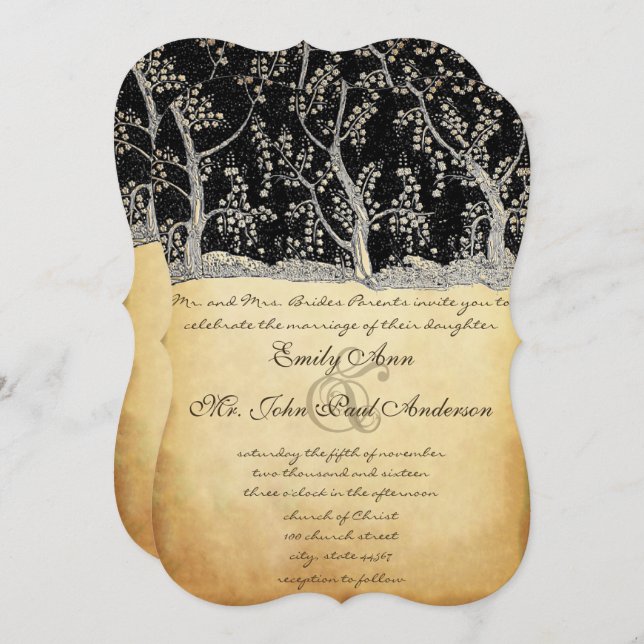 Mr. and Mrs. Brides Parents invite you to
celebrate the marriage of their daughter
Emily Ann
&
Mr. John Paul Anderson
saturday the fifth of november
two thousand and sixteen
three o'clock in the afternoon
church of Christ
100 church street
city, state 44567
reception to follow